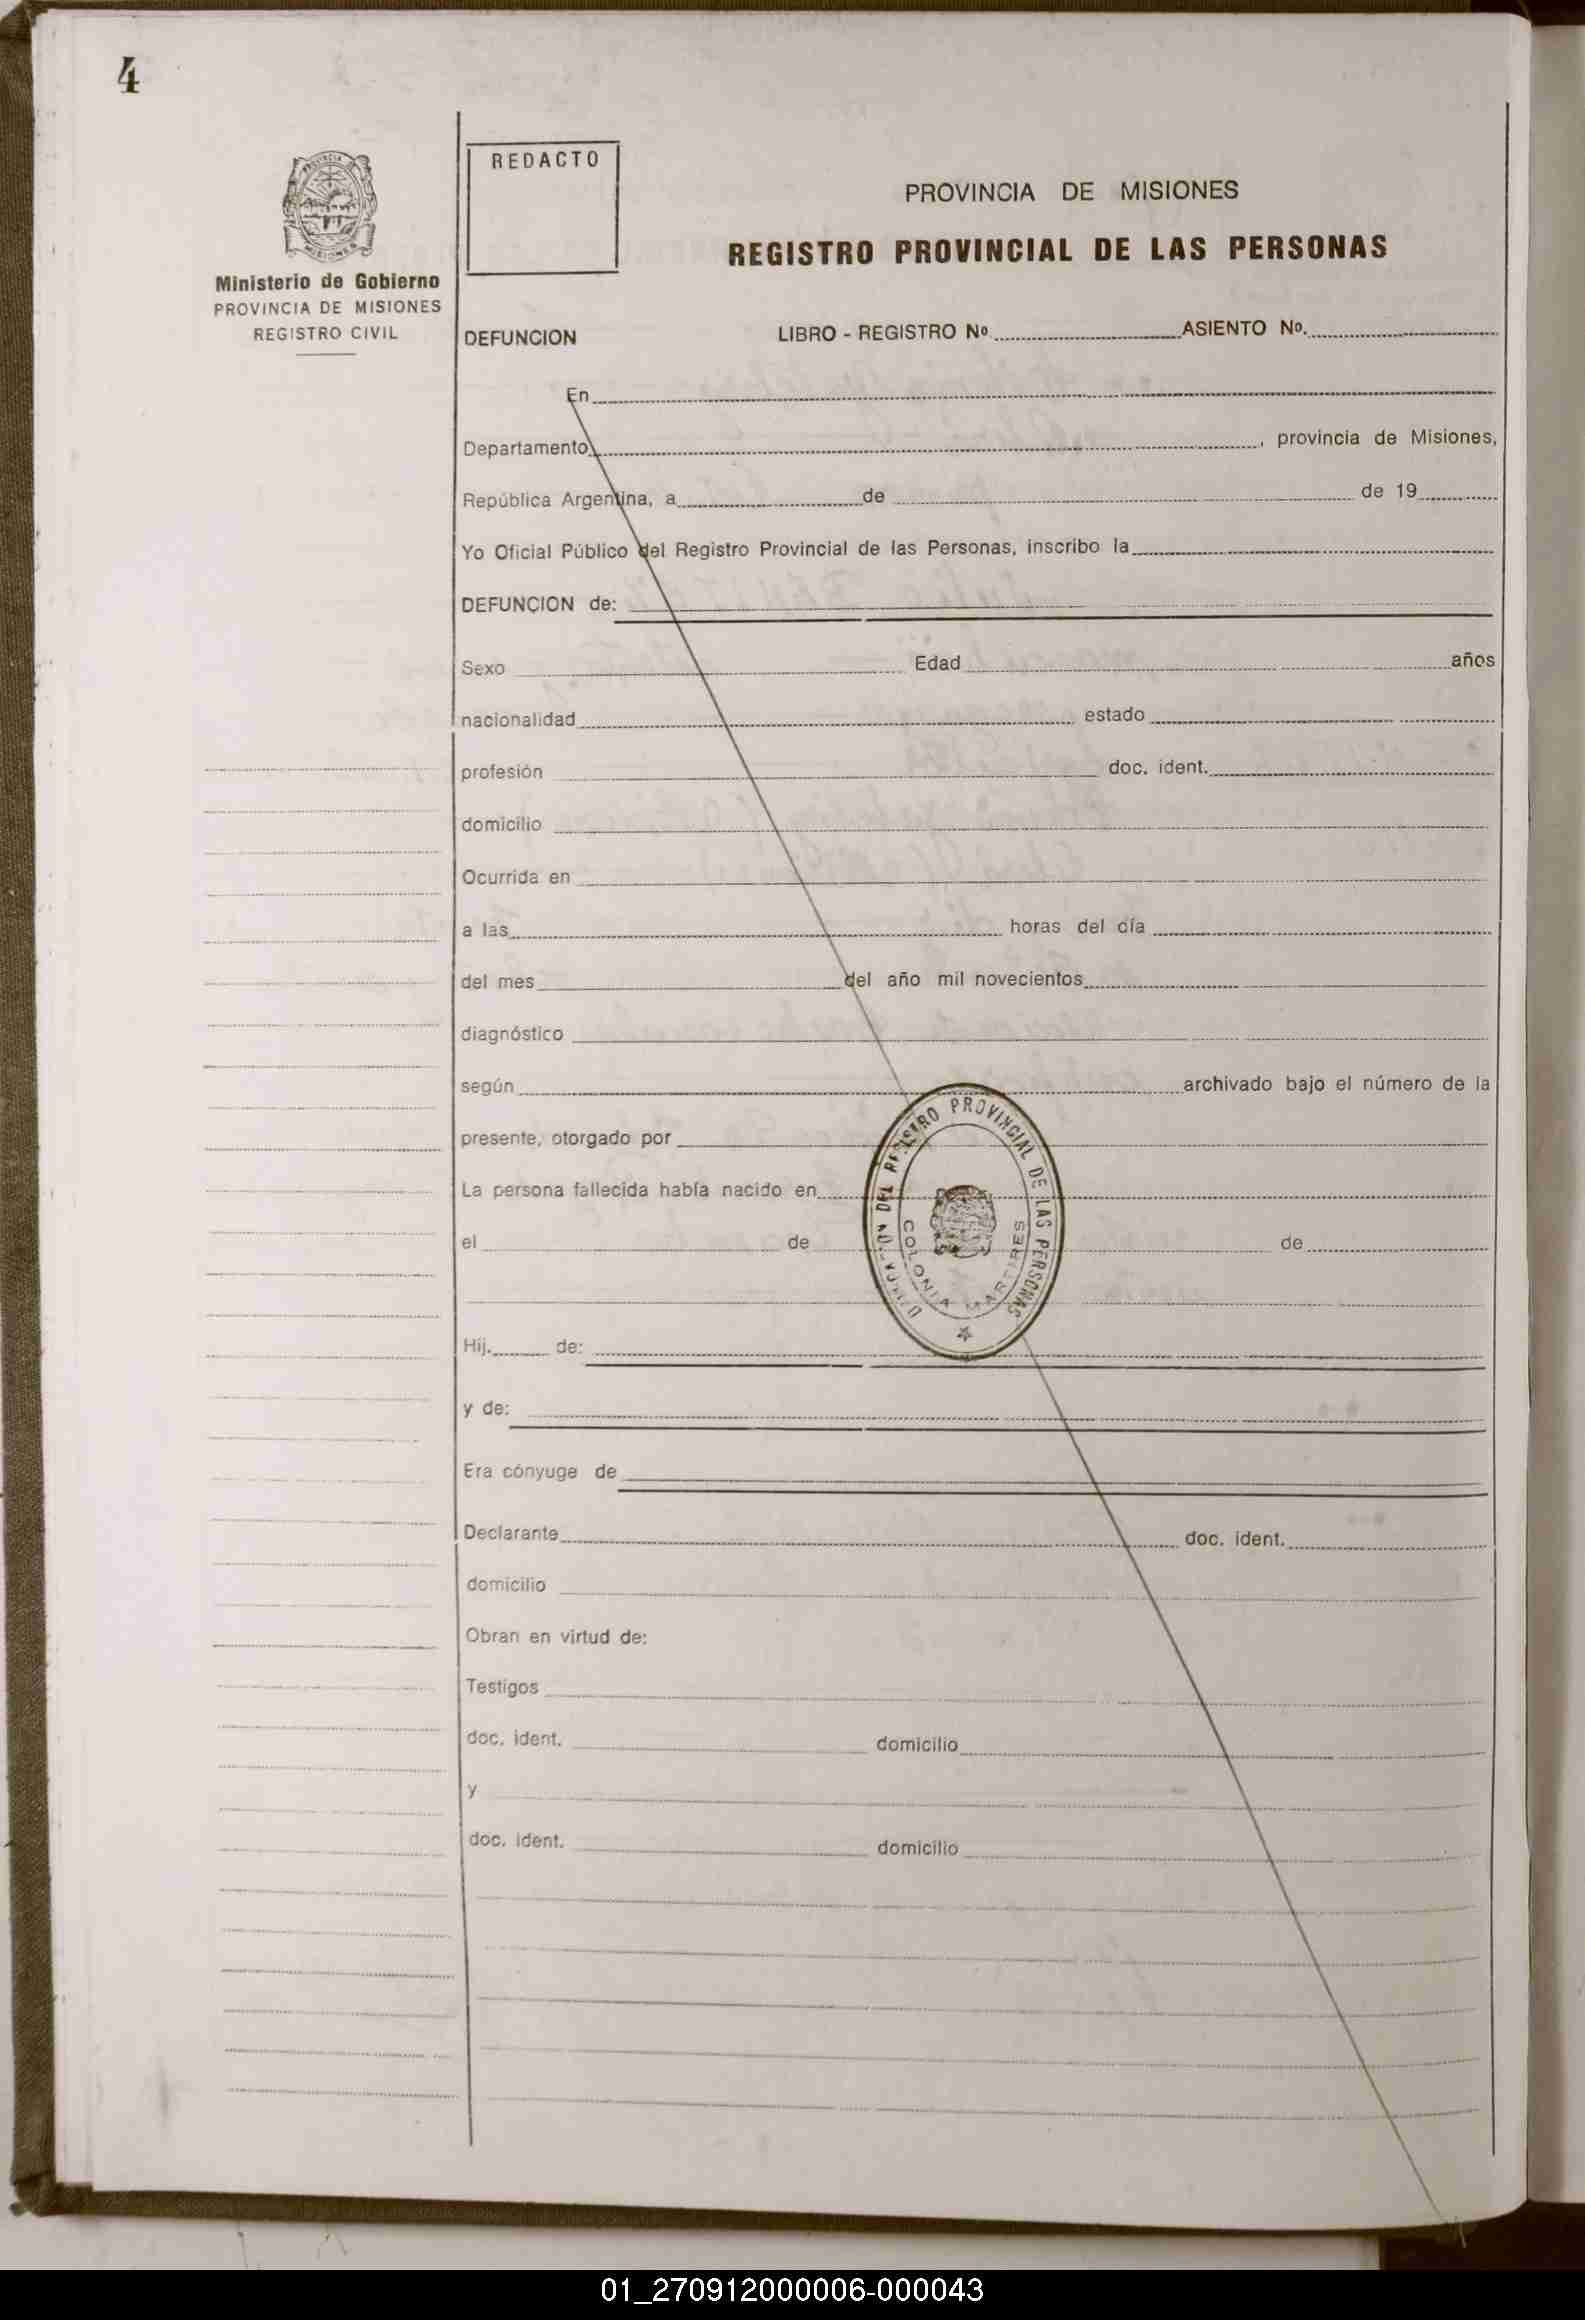 4
PROVINCIA DE
MISIONES
Ministerio de Gobierno
PROVINCIA DE MISIONES
REGISTRO CIVIL
REDACTO
PROVINCIA DE MISIONES
REGISTRO PROVINCIAL DE LAS PERSONAS
DEFUNCION LIBRO - REGISTRO Nº ASIENTO Nº.
En
Departamento , provincia de Misiones,
República Argentina, a de de 19
Yo Oficial Público del Registro Provincial de las Personas, inscribo la
DEFUNCION de:
Sexo Edad años
nacionalidad estado
profesión doc. ident.
domicilio
Ocurrida en
a las horas del día
del mes del año mil novecientos
diagnóstico
según archivado bajo el número de la
presente, otorgado por
La persona fallecida había nacido en
el de de
DEL REGISTRO PROVINCIAL DE LAS PERSONAS
COLONIA MARTIRES
Hij. de:
y de:
Era cónyuge de
Declarante doc. ident.
domicilio
Obran en virtud de:
Testigos
doc. ident. domicilio
y
doc. ident. domicilio
01_270912000006-000043